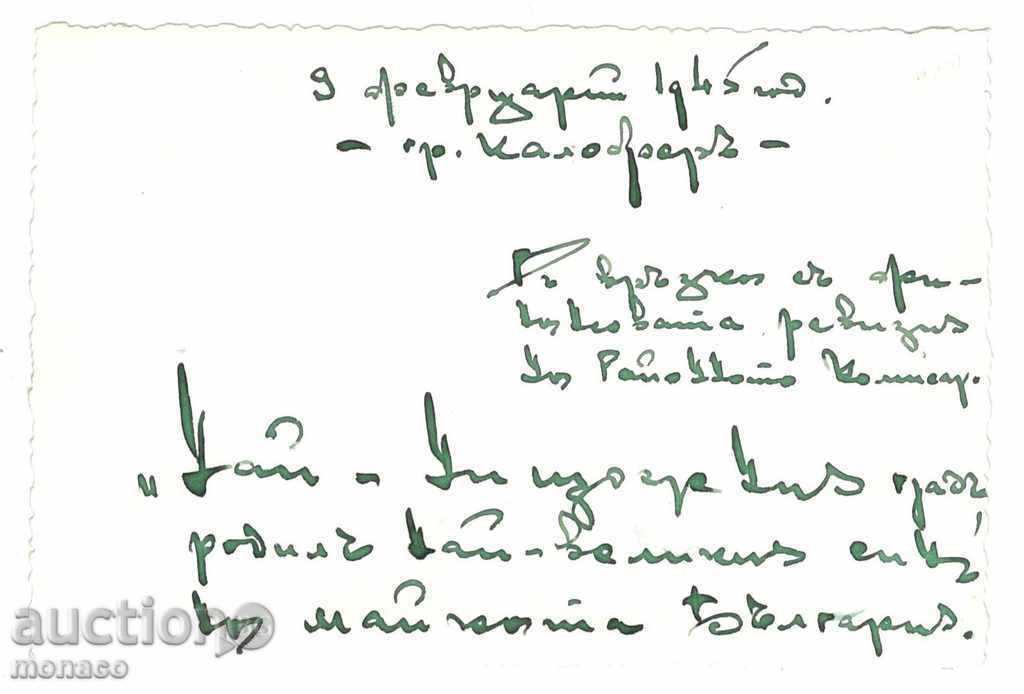 9 февруарий 1945 год.
- гр. Калоферъ -
Въ връзка съ фи-
нансовата ревизия
на Районното Комисар.
"Най - низвергния градъ,
родилъ най-великия синъ
на майката България.
auction.bg
monaco